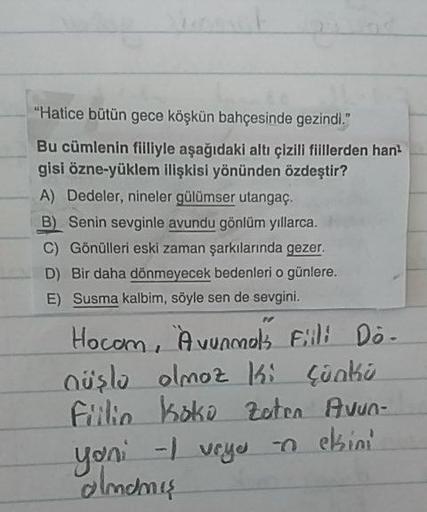 “Hatice bütün gece köşkün bahçesinde gezindi.”
Bu cümlenin fiiliyle aşağıdaki altı çizili fiillerden han-
gisi özne-yüklem ilişkisi yönünden özdeştir?
A) Dedeler, nineler gülümser utangaç.
B) Senin sevginle avundu gönlüm yıllarca.
C) Gönülleri eski zaman şarkılarında gezer.
D) Bir daha dönmeyecek bedenleri o günlere.
E) Susma kalbim, söyle sen de sevgini.
Hocam, "Avunmak" Fiili Dö-
nüşlü olmaz ki çünkü
Fiilin kökü zaten Avun-
yani -l veya -n ekini
almamış